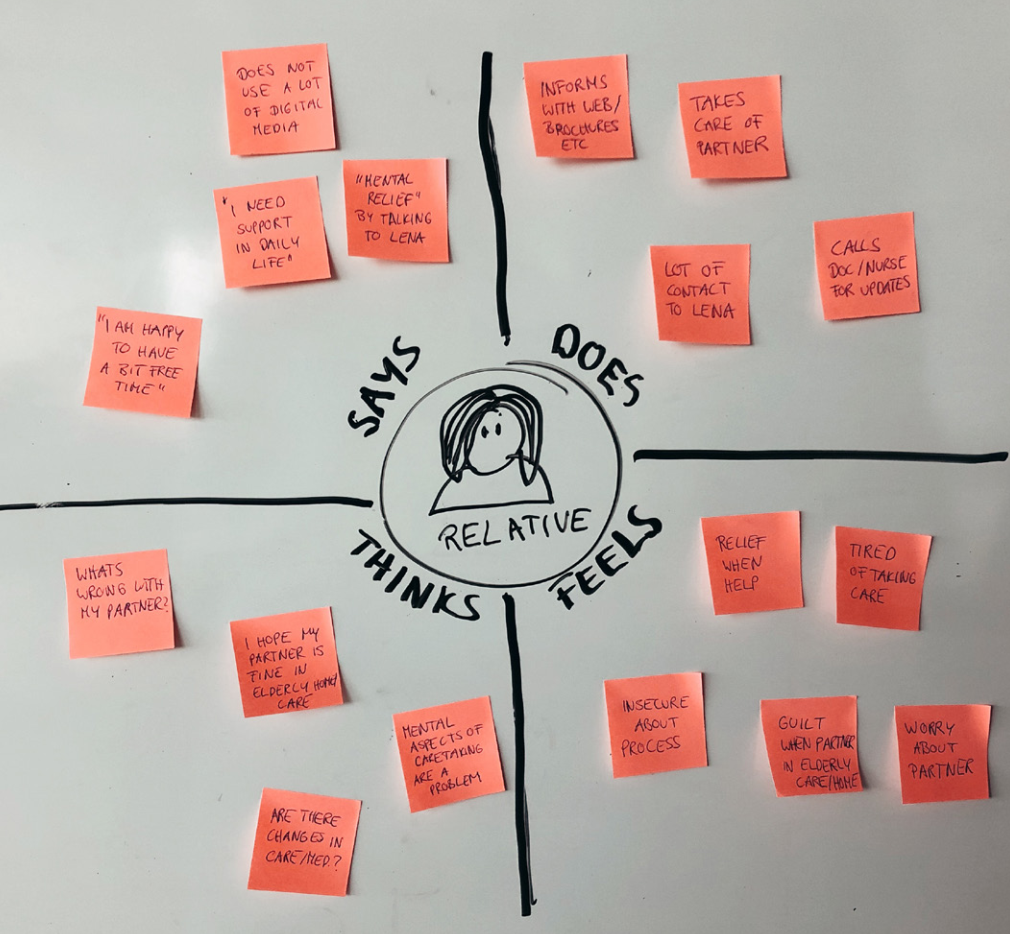 DOES NOT
USE A LOT
OF DIGITAL
MEDIA
"I NEED
SUPPORT
IN DAILY
LIFE"
"MENTAL
RELIEF"
BY TALKING
TO LENA
"I AM HAPPY
TO HAVE
A BIT FREE
TIME"
SAYS
INFORMS
WITH WEB/
BROCHURES
ETC
TAKES
CARE OF
PARTNER
LOT OF
CONTACT
TO LENA
CALLS
DOC/NURSE
FOR UPDATES
DOES
RELATIVE
THINKS
WHATS
WRONG WITH
MY PARTNER?
I HOPE MY
PARTNER IS
FINE IN
ELDERLY HOME/
CARE
MENTAL
ASPECTS OF
CARETAKING
ARE A
PROBLEM
ARE THERE
CHANGES IN
CARE/MED.?
FEELS
RELIEF
WHEN
HELP
TIRED
OF TAKING
CARE
INSECURE
ABOUT
PROCESS
GUILT
WHEN PARTNER
IN ELDERLY
CARE/HOME
WORRY
ABOUT
PARTNER